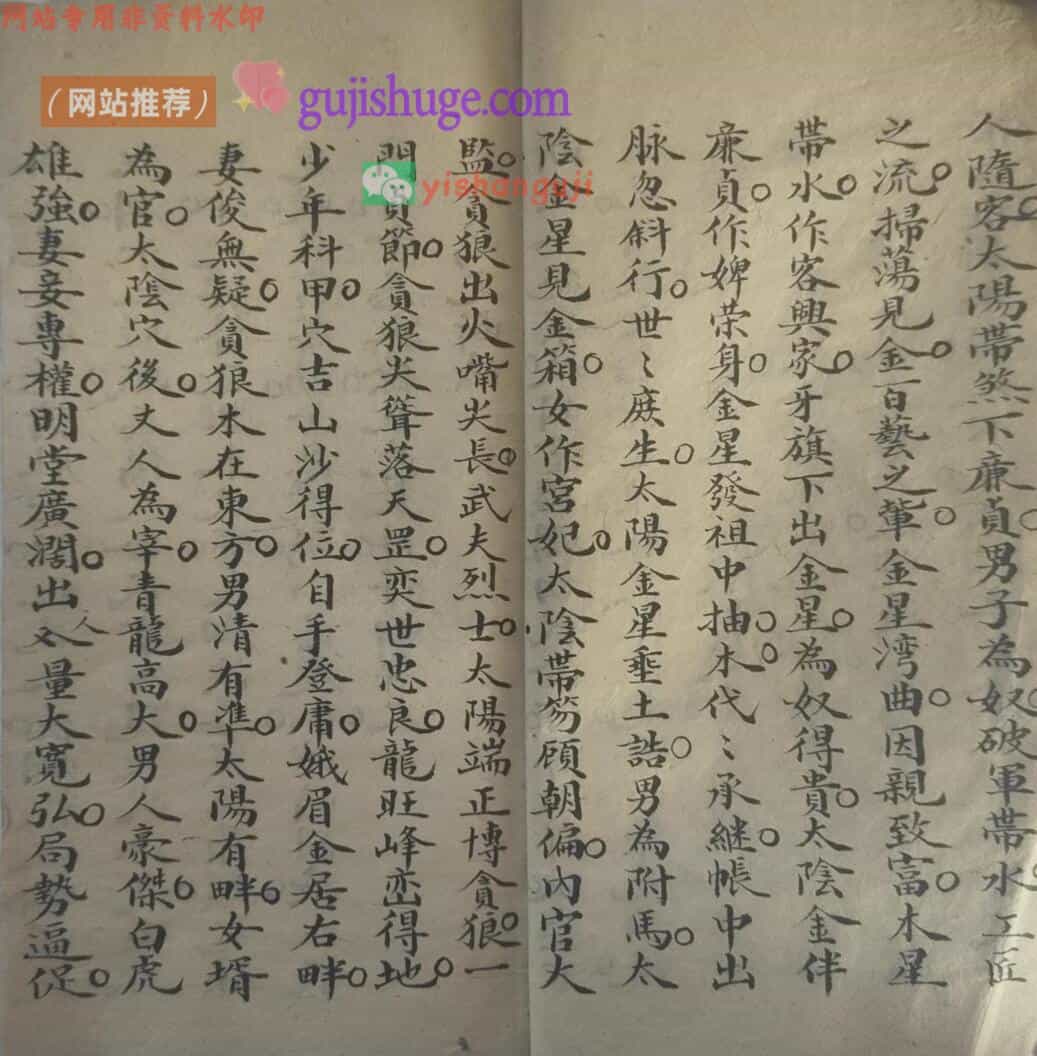 网站专用非资料水印
（网站推荐）
gujishuge.com
yishangyji
人隨客。太陽帶煞下廉貞。男子為奴。破軍帶水。工匠
之流。掃蕩見金。百藝之輩。金星湾曲。因親致富。木星
帶水。作客興家。牙旗下出金星。為奴得貴。太陰金伴
廉貞。作婢荣身。金星發祖中抽。木。代〻承継。帳中出
脉忽斜行。世〻庶生。太陽金星垂土誥。男為附馬。太
陰金星見金箱。女作宮妃。太陰帶笏頋朝偏。內官大
監。貪狼出火嘴尖長。武夫烈士。太陽端正博貪狼。一
門 節。貪狼尖聳落天罡。奕世忠良。龍旺峰峦得地。
少年科甲。穴吉山沙得位。白手登庸。娥眉金居右畔。
妻俊無疑。貪狼木在東方。男清有準。太陽有畔。女壻
為官。太陰穴後。丈人為宰。青龍高大。男人豪傑。白虎
雄強。妻妾專權。明堂廣濶。出人量大寬弘。局勢逼促。